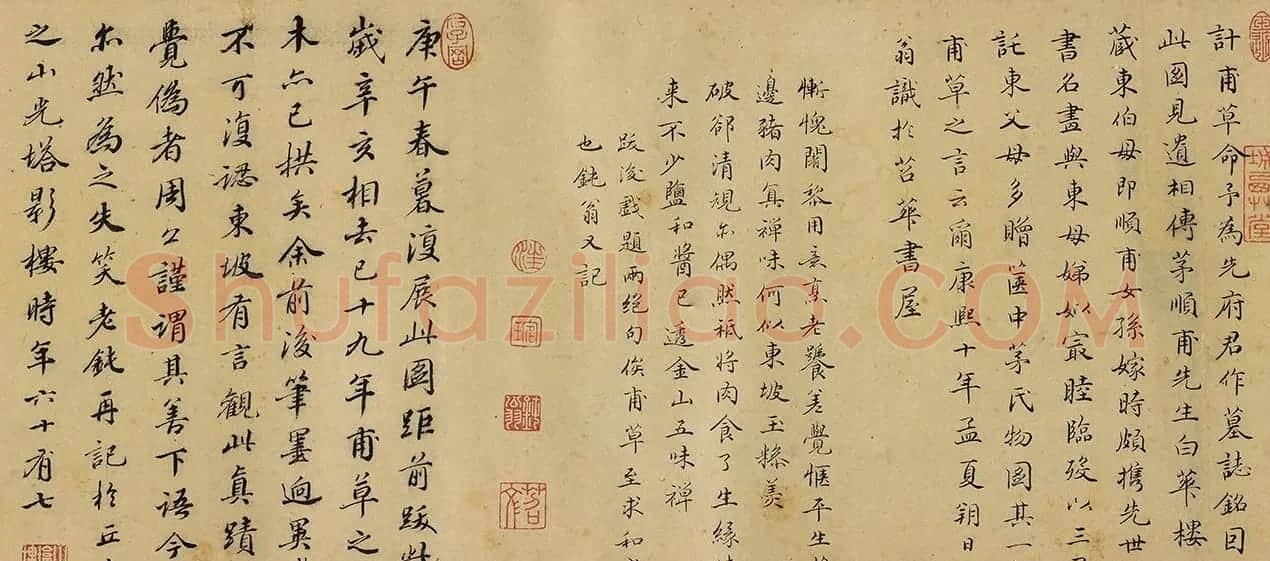 計甫草命予為先府君作墓誌銘因
此圖見遺相傳茅順甫先生白華樓
蔵東伯母即順甫女孫嫁時頗攜先世
書名畫與東母娣姒㝡睦臨歿以三
託東父母多贈篋中茅氏物圖其一
甫草之言云爾康熙十年孟夏朔日
翁識於苕華書屋
慚愧闍黎用意烹老饕差覺愜平生
邊豬肉真禪味何似東坡玉糝羮
破卻清規尔偶然祗將肉食了生緣
来不少鹽和醬已透金山五味禪
跋後戯題兩絕句俟甫草至求和
也鈍翁又記
汪
琬
鈍翁
苕文
庚午春暮復展此圖距前跋
歲辛亥相去已十九年甫草之
木亦已拱矣余前後筆墨逈異
不可復認東坡有言觀此真蹟
覺偽者周公謹謂其善下語今
尔然為之失笑老鈍再記於丘
之山光塔影樓時年六十有七
Shufaziliao.COM